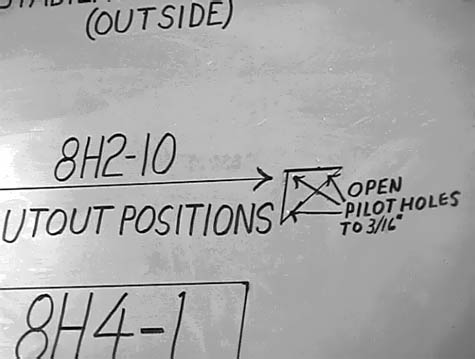 (OUTSIDE)
8H2-10
UTOUT POSITIONS
OPEN
PILOT HOLES
TO 3/16"
8H4-1